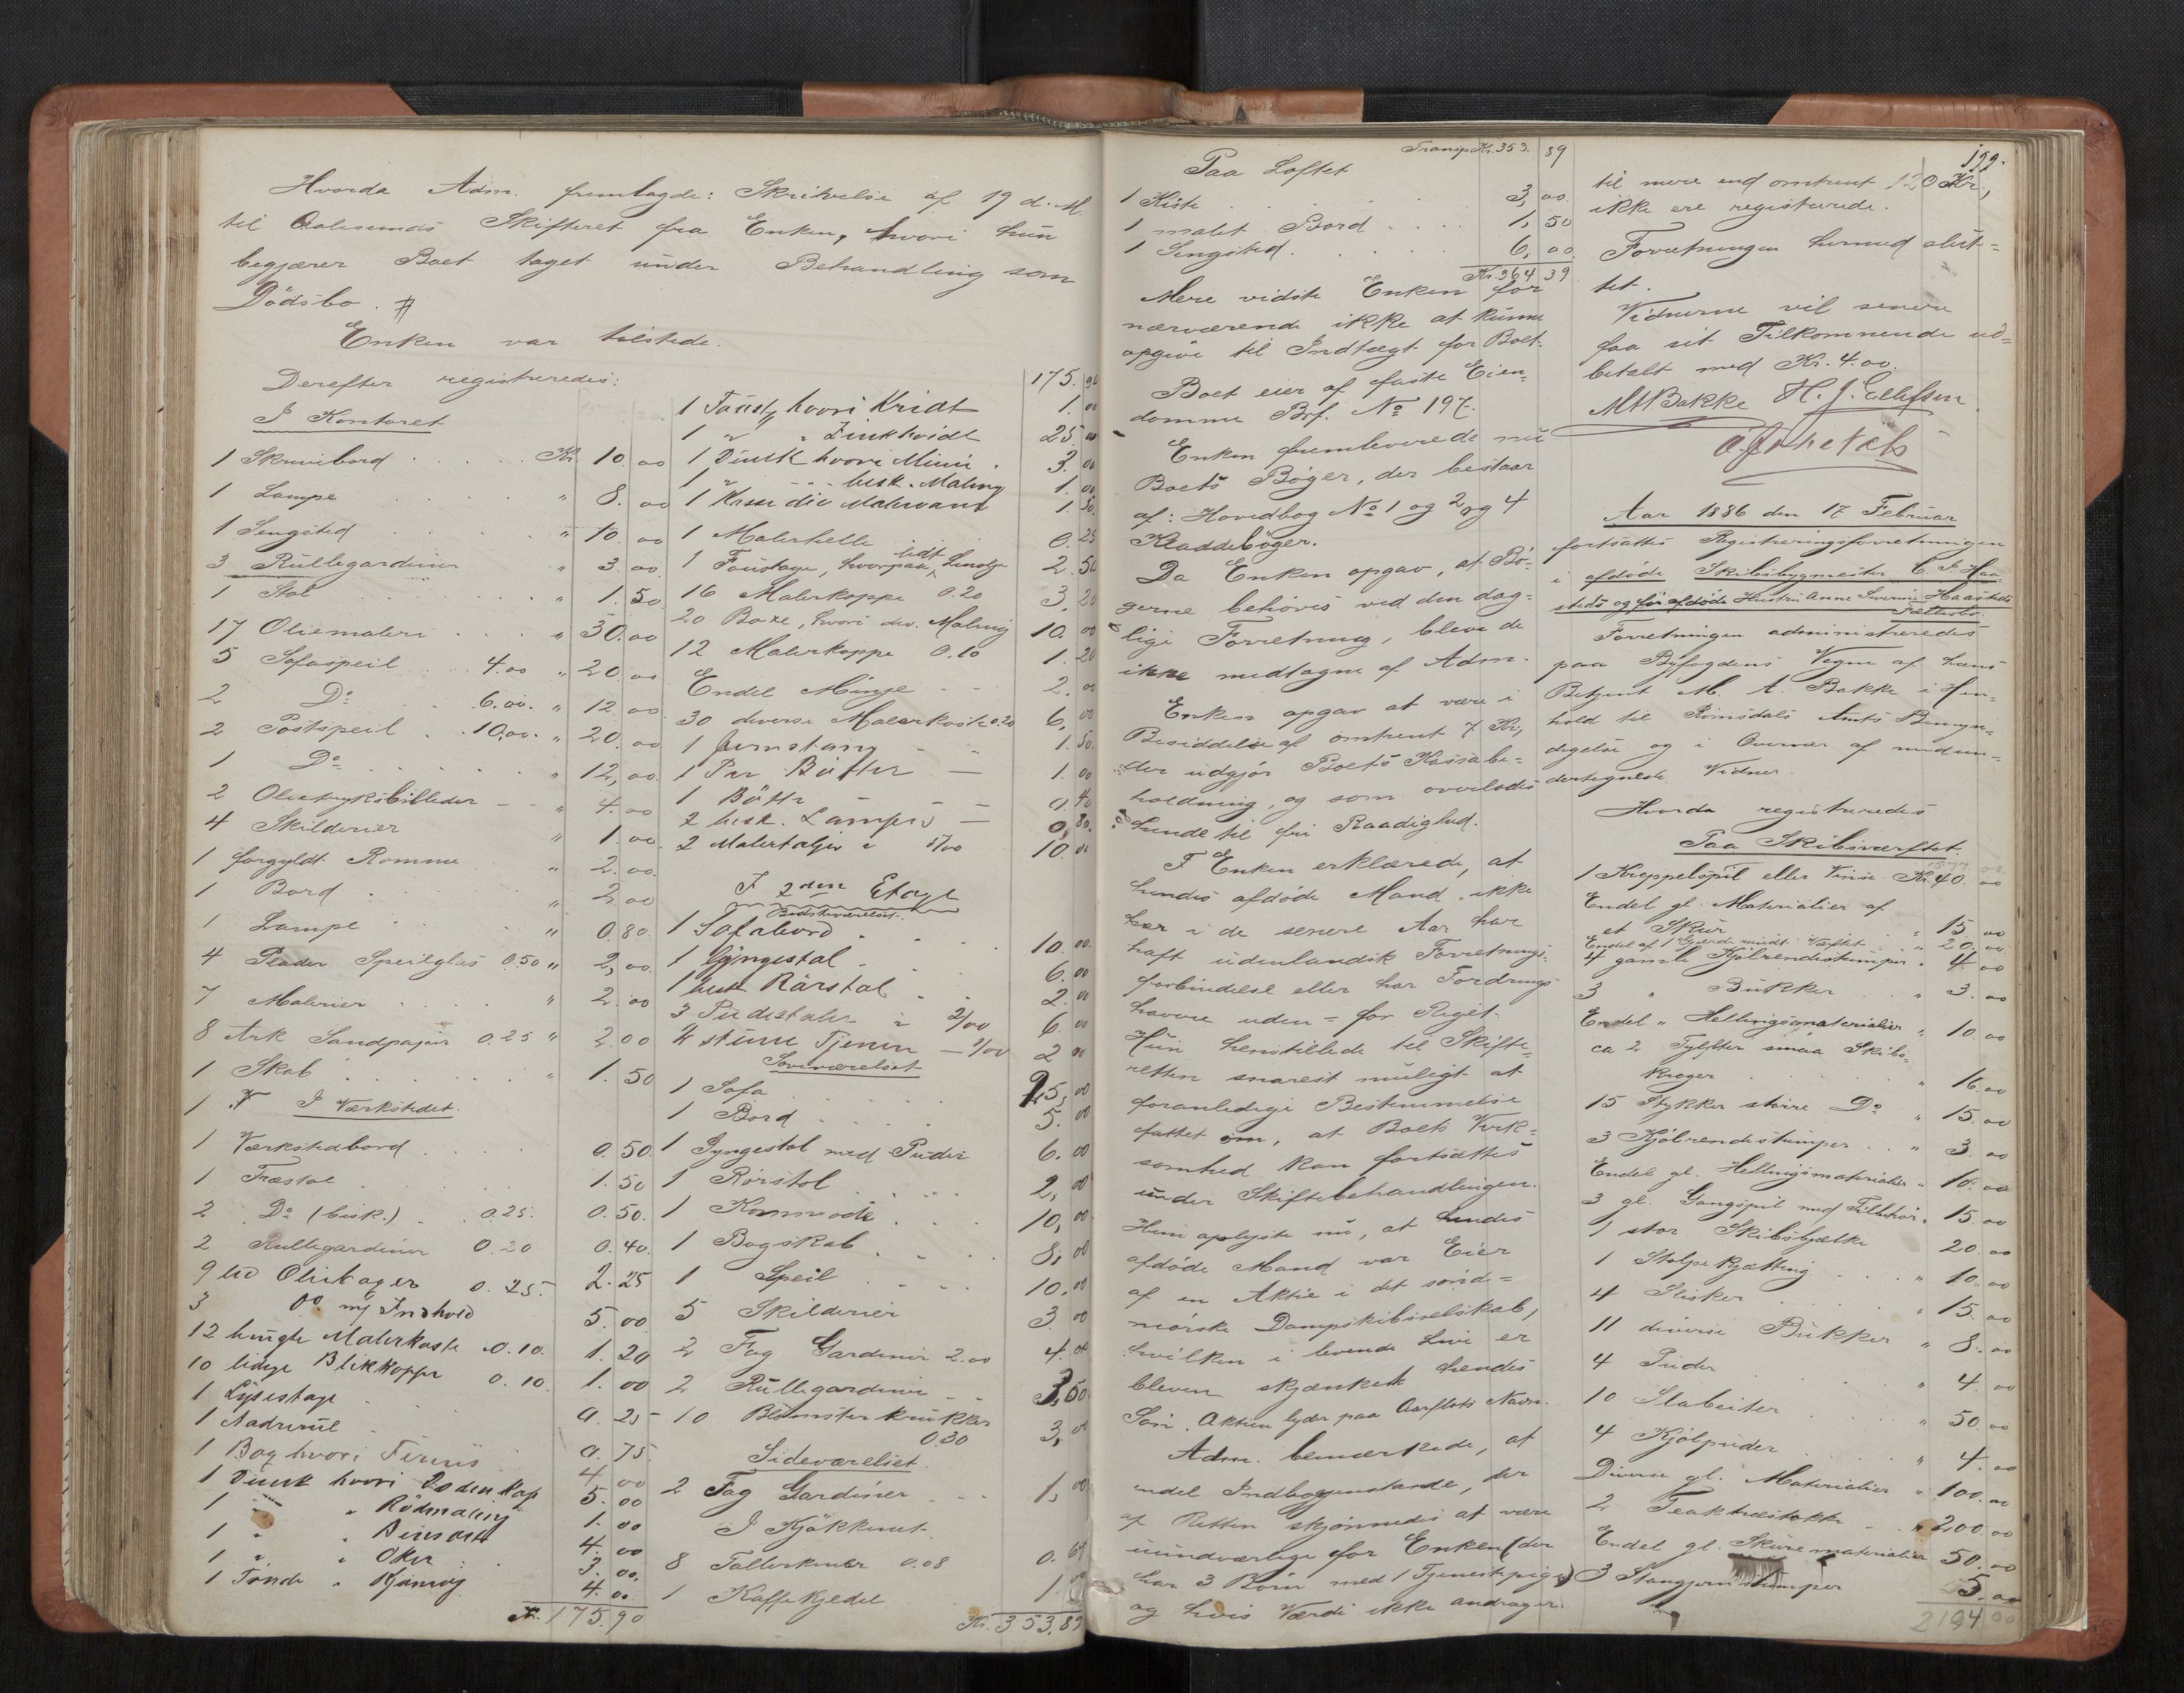 Hvorda Adm. fremlagde: Skrivelse af 19 d. M.
til Aalesunds Skifteret fra Enken, hvori hun
begjærer Boet taget under Behandling som
Dödsbo. #
Enken var tilstede.
Derefter registreredes:
I Kontoret
1 Skrivebord . . . . . Kr. 10. 00
1 Lampe . . . . " 8. 00
1 Sengsted . . . . " 10. 00
3 Rullegardiner " 3. 00
1 Stol . . . . . " 1. 50
17 Oliemaleri . . . . " 30. 00
5 Sofaspeil . . 4.00 " 20. 00
2 Do . . 6.00. " 12. 00
2 Postspeil . . 10,00. " 20. 00
1 Do . . . . " 12, 00
2 Olietryksbilleder - - " 4. 00
4 Skilderier " 1. 00
1 forgyldt Ramme " 2. 00
1 Bord . . . " 2. 00
1 Lampe . . " 0. 80.
4 Plader Speilglas 0.50 " 2, 00
7 Malerier . . . . " 2. 00
8 Ark Sandpapir 0.25 " 2. 00
1 Skab . . . . . " 1. 50
I Værkstedet.
1 Værkstedbord . . . . 0. 50.
1 Træstol . . . . 1. 50
2 Do (besk.) . . 0.25. 0. 50.
2 Rullegardiner 0.20 0. 40.
9 Oliekager 0.25. 2. 25
3 Do m/ Indhold 5. 00
12 brugte Malerkoste 0.10. 1. 20
10 ledige Blikkopper 0.10. 1. 00
1 Lysestage . . 0. 25
1 . . 0. 75.
1 Bag hvori Fernis 4. 00
1 Dunk hvori Dodenkop 5. 00
1 " " Rödmaling 1. 00
1 " " 4. 00
1 " " Oker . . 3. 00.
1 Tönde " Kjönrög 4. 00
Kr. 175. 90
175. 90
1 hvori Kridt 1. 00
1 " " Zinkhvidt 25. 00
1 Dunk hvori Minie . 3. 00
1 " - - - besk. Maling 1. 00
1 Kasse div Malervand 1. 50.
1 Malerhelle 0. 25
1 Foustage, hvorpaa lidt Linolje 2. 50
16 Malerkoppe 0.20 3. 20
20 Boxe, hvori div. Maling 10. 00
12 Malerkoppe 0.10 1. 20
Endel Minje - - 2. 00
30 diverse Malerkoste 0.20 6. 00
1 Jernstang - - 1. 50.
1 Par Bötter — 1. 00
1 Bötte — 0. 40
2 besk. Lamper — 0, 80.
2 Malertaljer à 5/00 10. 00
I 2den Etage
Bedsteværelset.
1 Sofabord . . . . 10. 00.
1 Gyngestol . . . 6. 00
1 besk Rörstol . . 2. 00
3 Piedestaler à 2/00 6. 00
4 stumme Tjenere — /00 2 00
Soveværelset
1 Sofa . . . . 25, 00
1 Bord . . . . 5. 00
1 Gyngestol med Puder 6. 00
1 Rörstol . . . . 2, 00
1 Kommode . . . 10, 00
1 Bogskab . . . . 8, 00
1 Speil . . . . 10, 00
5 Skilderier 3 00
2 Fag Gardiner 2.00 4. 00
2 Rullegardiner - - 3, 50.
10 Blomsterkrukker
0.30 3, 00
Sideværelset.
2 Fag Gardiner . . . 1, 00
I Kjökkenet.
8 Tallerkener 0.08 0. 64
1 Kaffekjedel 1. 00
Kr. 353. 89
Transp. Kr. 353. 89
Paa Loftet
1 Kiste . . . . . 3, 00.
1 malet Bord . . . . 1, 50
1 Sengsted. . . . 6, 00.
Kr. 364 39
Mere vidste Enken for
nærværende ikke at kunne
opgive til Indtægt for Boet.
Boet eier af faste Eien=
domme Brf. No 197.
Enken fremleverede nu
Boets Böger, der bestaar
af: Hovedbog No 1 og 2 og 4
Kladdeböger.
Da Enken opgav, at Bö=
gerne behöves ved den dag=
lige Forretning, bleve de
ikke medtagne af Adm.
Enken opgav at være i
Besiddelse af omtrent 7 Kr,
der udgjör Boets Kassabe=
holdning, og som overlodes
hende til fri Raadighed.
F Enken erklærede, at
hendes afdöde Mand ikke
har i de senere Aar har
haft udenlandsk Forretnings=
forbindelse eller har Fordrings=
havere uden=for Riget.
Hun henstillede til Skifte=
retten snarest muligt at
foranledige Bestemmelse
fattet om, at Boets Virk=
somhed kan fortsættes
under Skiftebehandlingen.
Hun oplyste nu, at hendes
afdöde Mand var Eier
af en Aktie i det sönd=
mörske Dampskibsselskab,
hvilken i levende Live er
bleven skjænket hendes
Sön. Aktien lyder paa Aarflots Navn.
Adm. bemærkede, at
endel Indbogjenstande, der
af Retten skjönnedes at være
uundværlige for Enken (der
har 3 Börn med 1 Tjenestepige)
og hvis Værdi ikke andrager
199.
til mere end omtrent 120 Kr.,
ikke ere registrerede.
Forretningen hermed slut=
tet.
Vidnerne vil senere
faa sit Tilkommende ud=
betalt med Kr. 4.00.
MABakke H. J. Ellefsen
Aar 1886 den 17 Februar
fortsattes Registreringsforretningen
i afdöde Skibsbygmester C. F. Haa
steds og för afdöde Hustru Anne Severine Haasteds
Fællesbo.
Forretningen administreredes
paa Byfogdens Vegne af hans
Betjent M. A. Bakke i Hen=
hold til Romsdals Amts Bemyn=
digelse og i Overvær af medun=
dertegnede Vidner.
Hvorda registreredes
Paa Skibsværftet
1 Kreppelspil eller Vinse Kr. 40. 00
Endel gl. Materialier af
et Skur . . . " 15. 00
Endel af 1 Gjerde rundt Værftet . . " 20. 00
4 gamle Kjölrendestumper " 4. 00
3 " Bukker . . " 3. 00
Endel " Hellingsmaterialier " 10. 00
ca 2 Tylfter smaa Skibs=
knæer . . . . " 16. 00
15 Stykker större Do " 15. 00
3 Kjölrendestumper . . " 3. 00
Endel gl. Hellingsmaterialier " 10. 00
3 gl. Gangspil med Tilbehör " 15. 00
1 stor Skibsbjælke 20. 00
1 Stolpekjætting . . . " 10. 00
4 Slisker . . . . " 15. 00
11 diverse Bukker " 8. 00
4 Puder . . . . " 4. 00
10 Slabeiter . . . " 50. 00
4 Kjölpuder . . . " 4. 00
Diverse gl. Materialier " 100. 00
2 Teaktræstokke - " 200. 00
Endel gl. Skurmaterialier 50. 00
3 Stangjernstumper 5. 00
2194 00